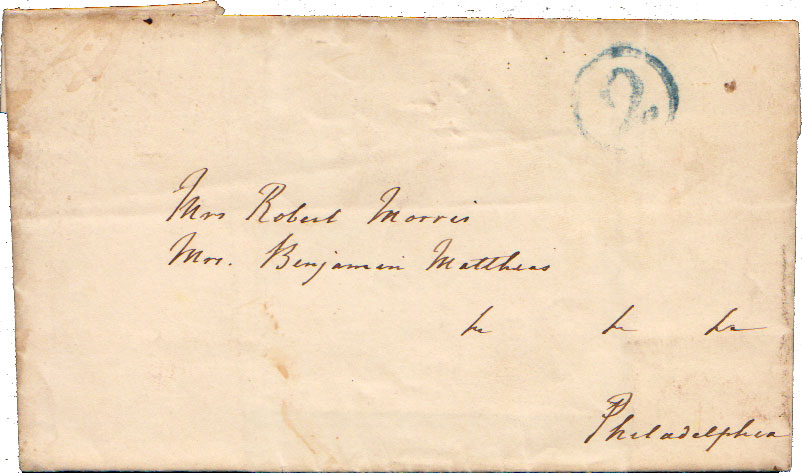 2
Mrs Robert Morris
Mrs. Benjamin Matthias
Philadelphia